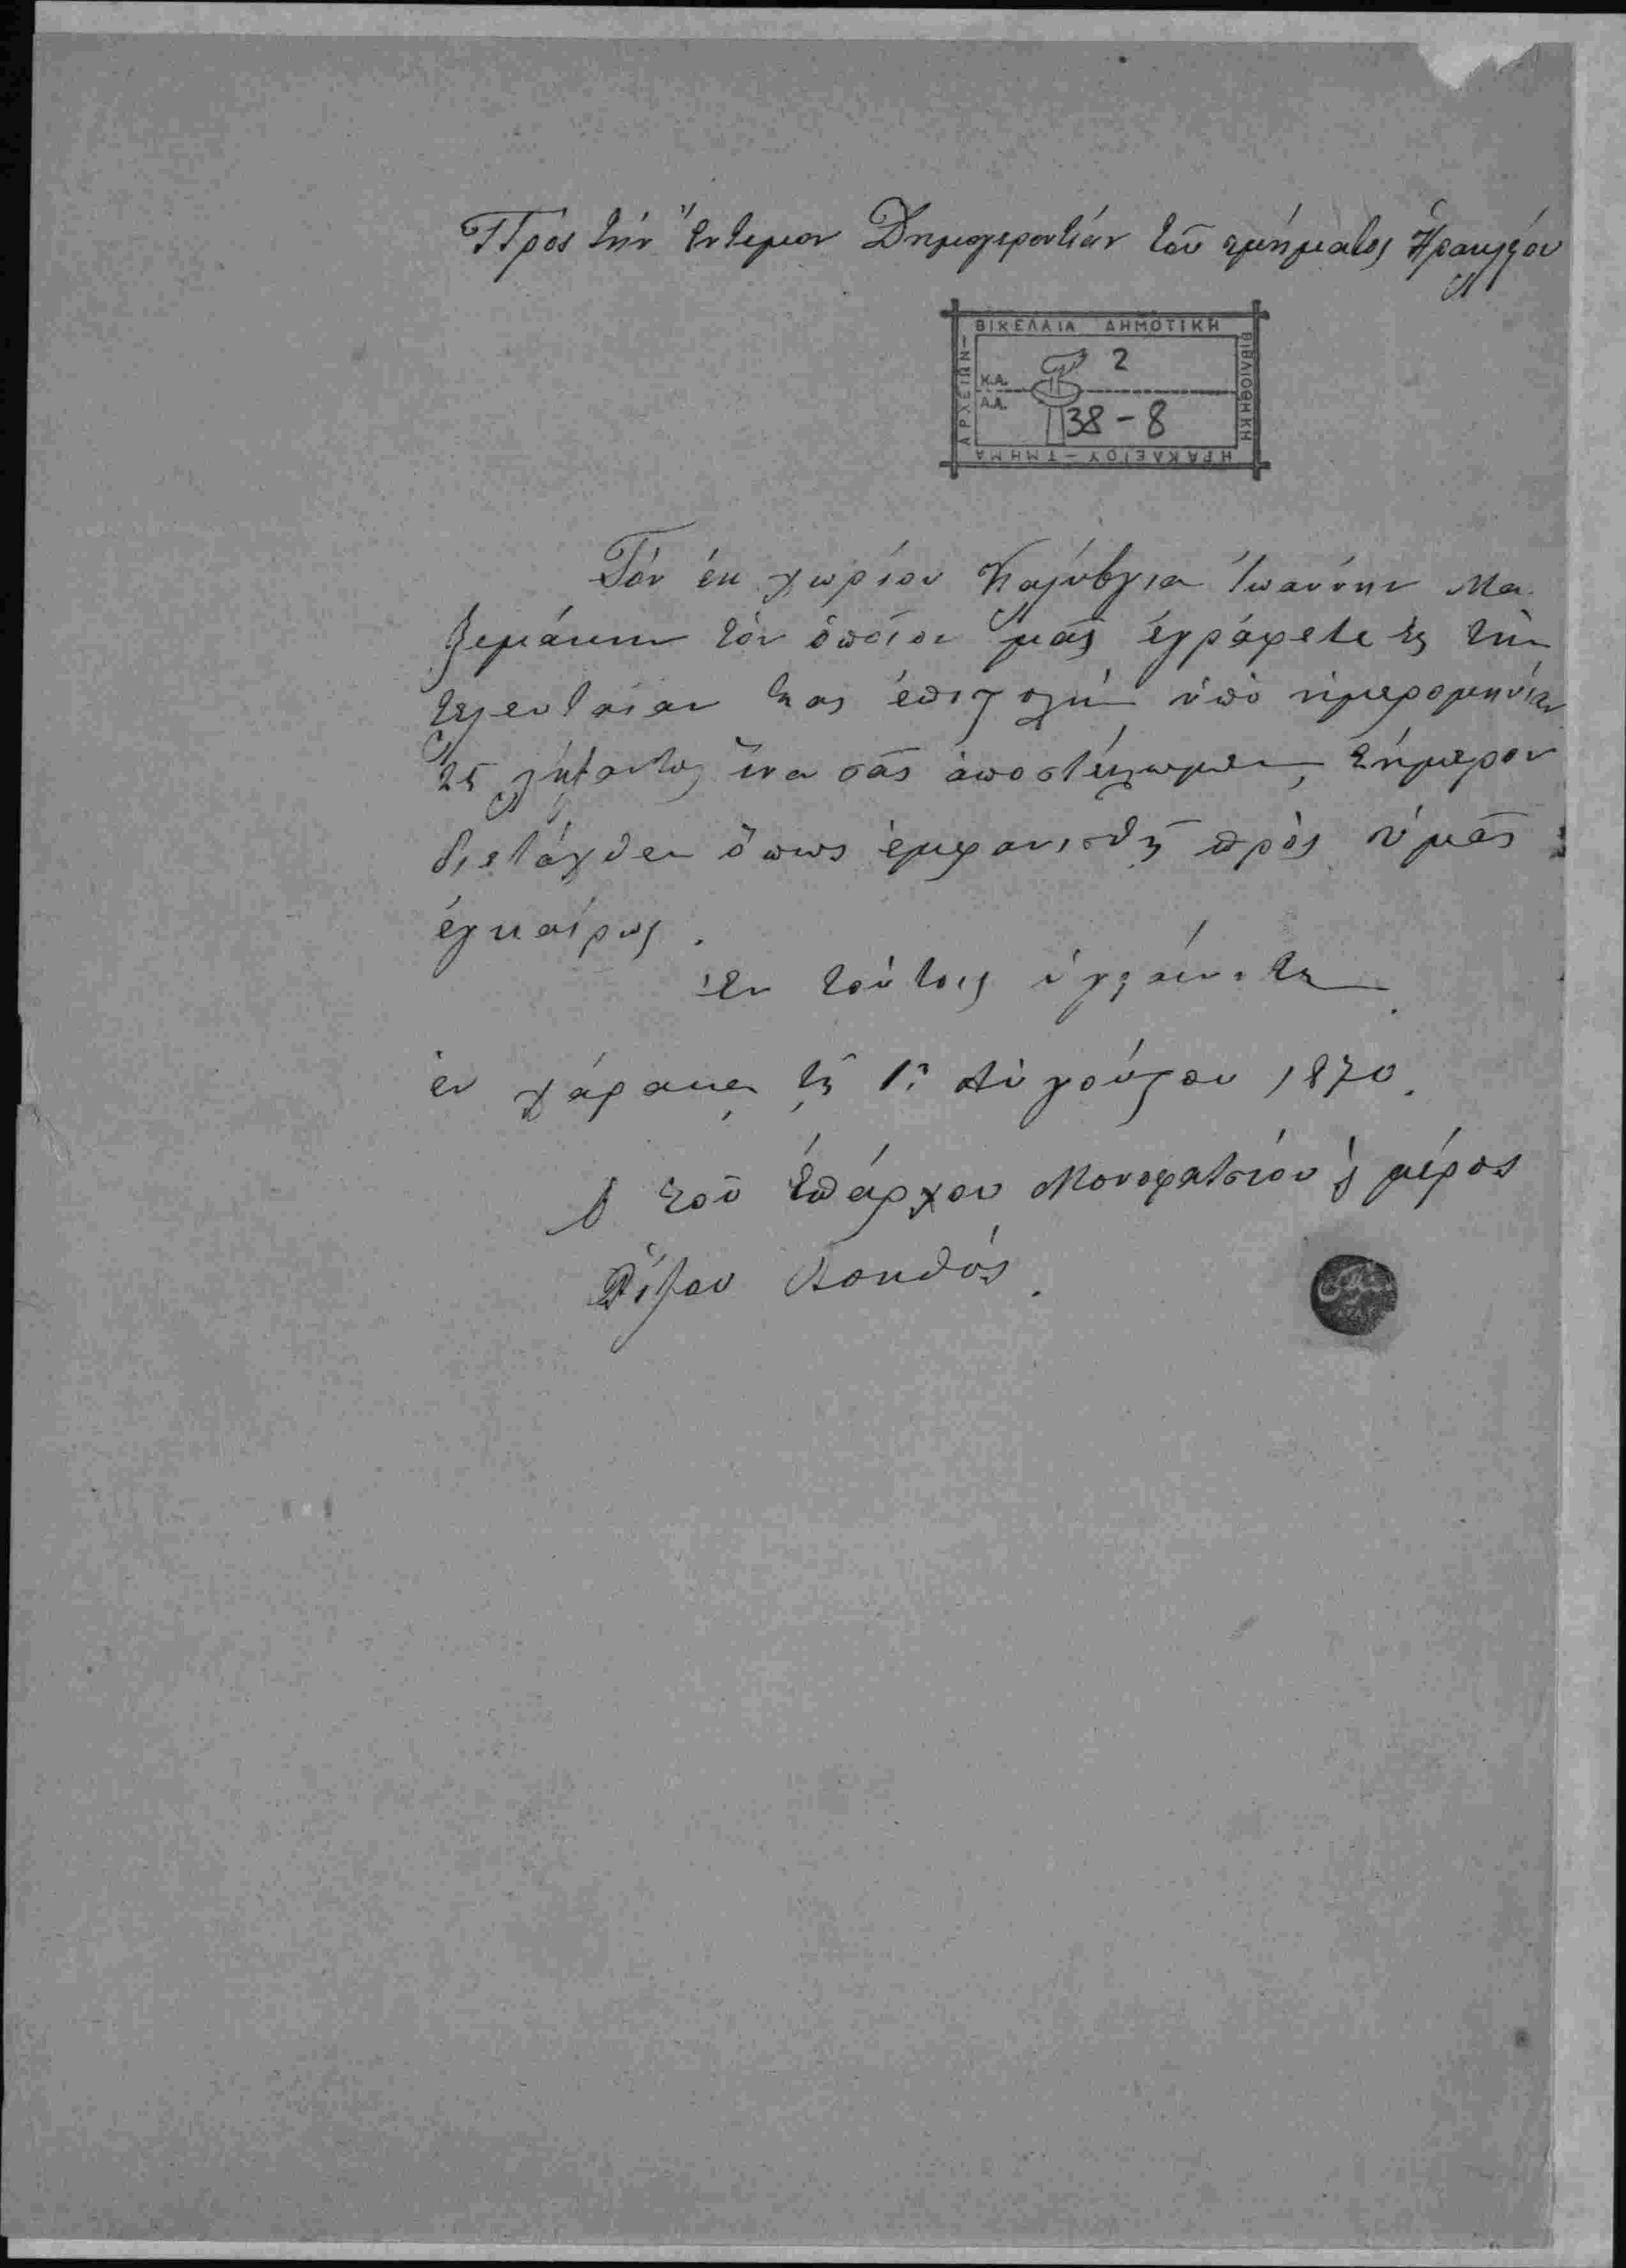 Πρὸς τὴν Ἔντιμον Δημογεροντίαν τοῦ τμήματος Ἡρακλείου
ΒΙΚΕΛΑΙΑ ΔΗΜΟΤΙΚΗ
ΒΙΒΛΙΟΘΗΚΗ
ΗΡΑΚΛΕΙΟΥ - ΤΜΗΜΑ
ΑΡΧΕΙΩΝ
Κ.Α. 2
Α.Α. 38 - 8
Τόν ἐκ χωρίου Καλύβγια Ἰωάννην Μα
τὸν ὁποῖον μᾶς ἐγράφετε τὴν
τελευταίαν σας ἐπιστολὴν ὑπὸ ἡμερομηνίαν
25 λήξαντος ἵνα σᾶς ἀποστείλωμεν, σήμερον
διετάχθη ὅπως ἐμφανισθῇ πρὸς ὑμᾶς
ἐγκαίρως.
Ἐν τούτοις ὑγιαίνετε.
ἐν χάρακι τῇ 1ῃ Αὐγούστου 1870.
Ὁ τοῦ Ἐπάρχου Μονοφατσίου μέρος
Βοηθός.